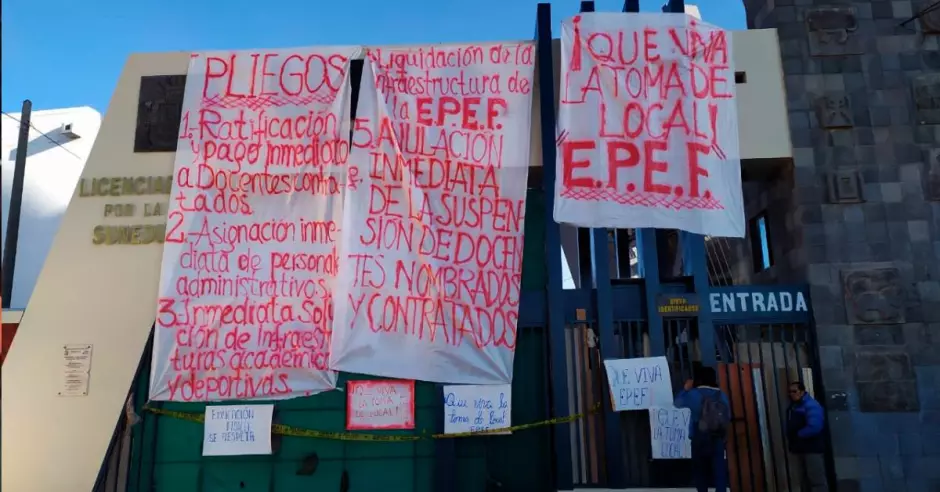 PLIEGOS
1. Ratificación
y pago inmediato
a Docentes contra-
tados.
2.- Asignación inme-
diata de personal
administrativos
3. Inmediata Solu-
ción de Infraes-
turas académica
y deportivas.
Liquidación de la
infraestructura de
la E.P.E.F.
5. ANULACIÓN
INMEDIATA
DE LA SUSPEN-
SIÓN DE DOCEN
TES NOMBRADOS
Y CONTRATADOS
¡QUE VIVA
LA TOMA DE
LOCAL!
E.P.E.F.
LICENCIADA
POR LA
SUNEDU
ENTRADA
EDUCACIÓN
FÍSICA
SE RESPETA
¡QUE VIVA
LA TOMA
DE LOCAL!
Que viva la
toma de local
EPEF
QUE VIVA
EPEF
LA TOMA
DE
LOCAL